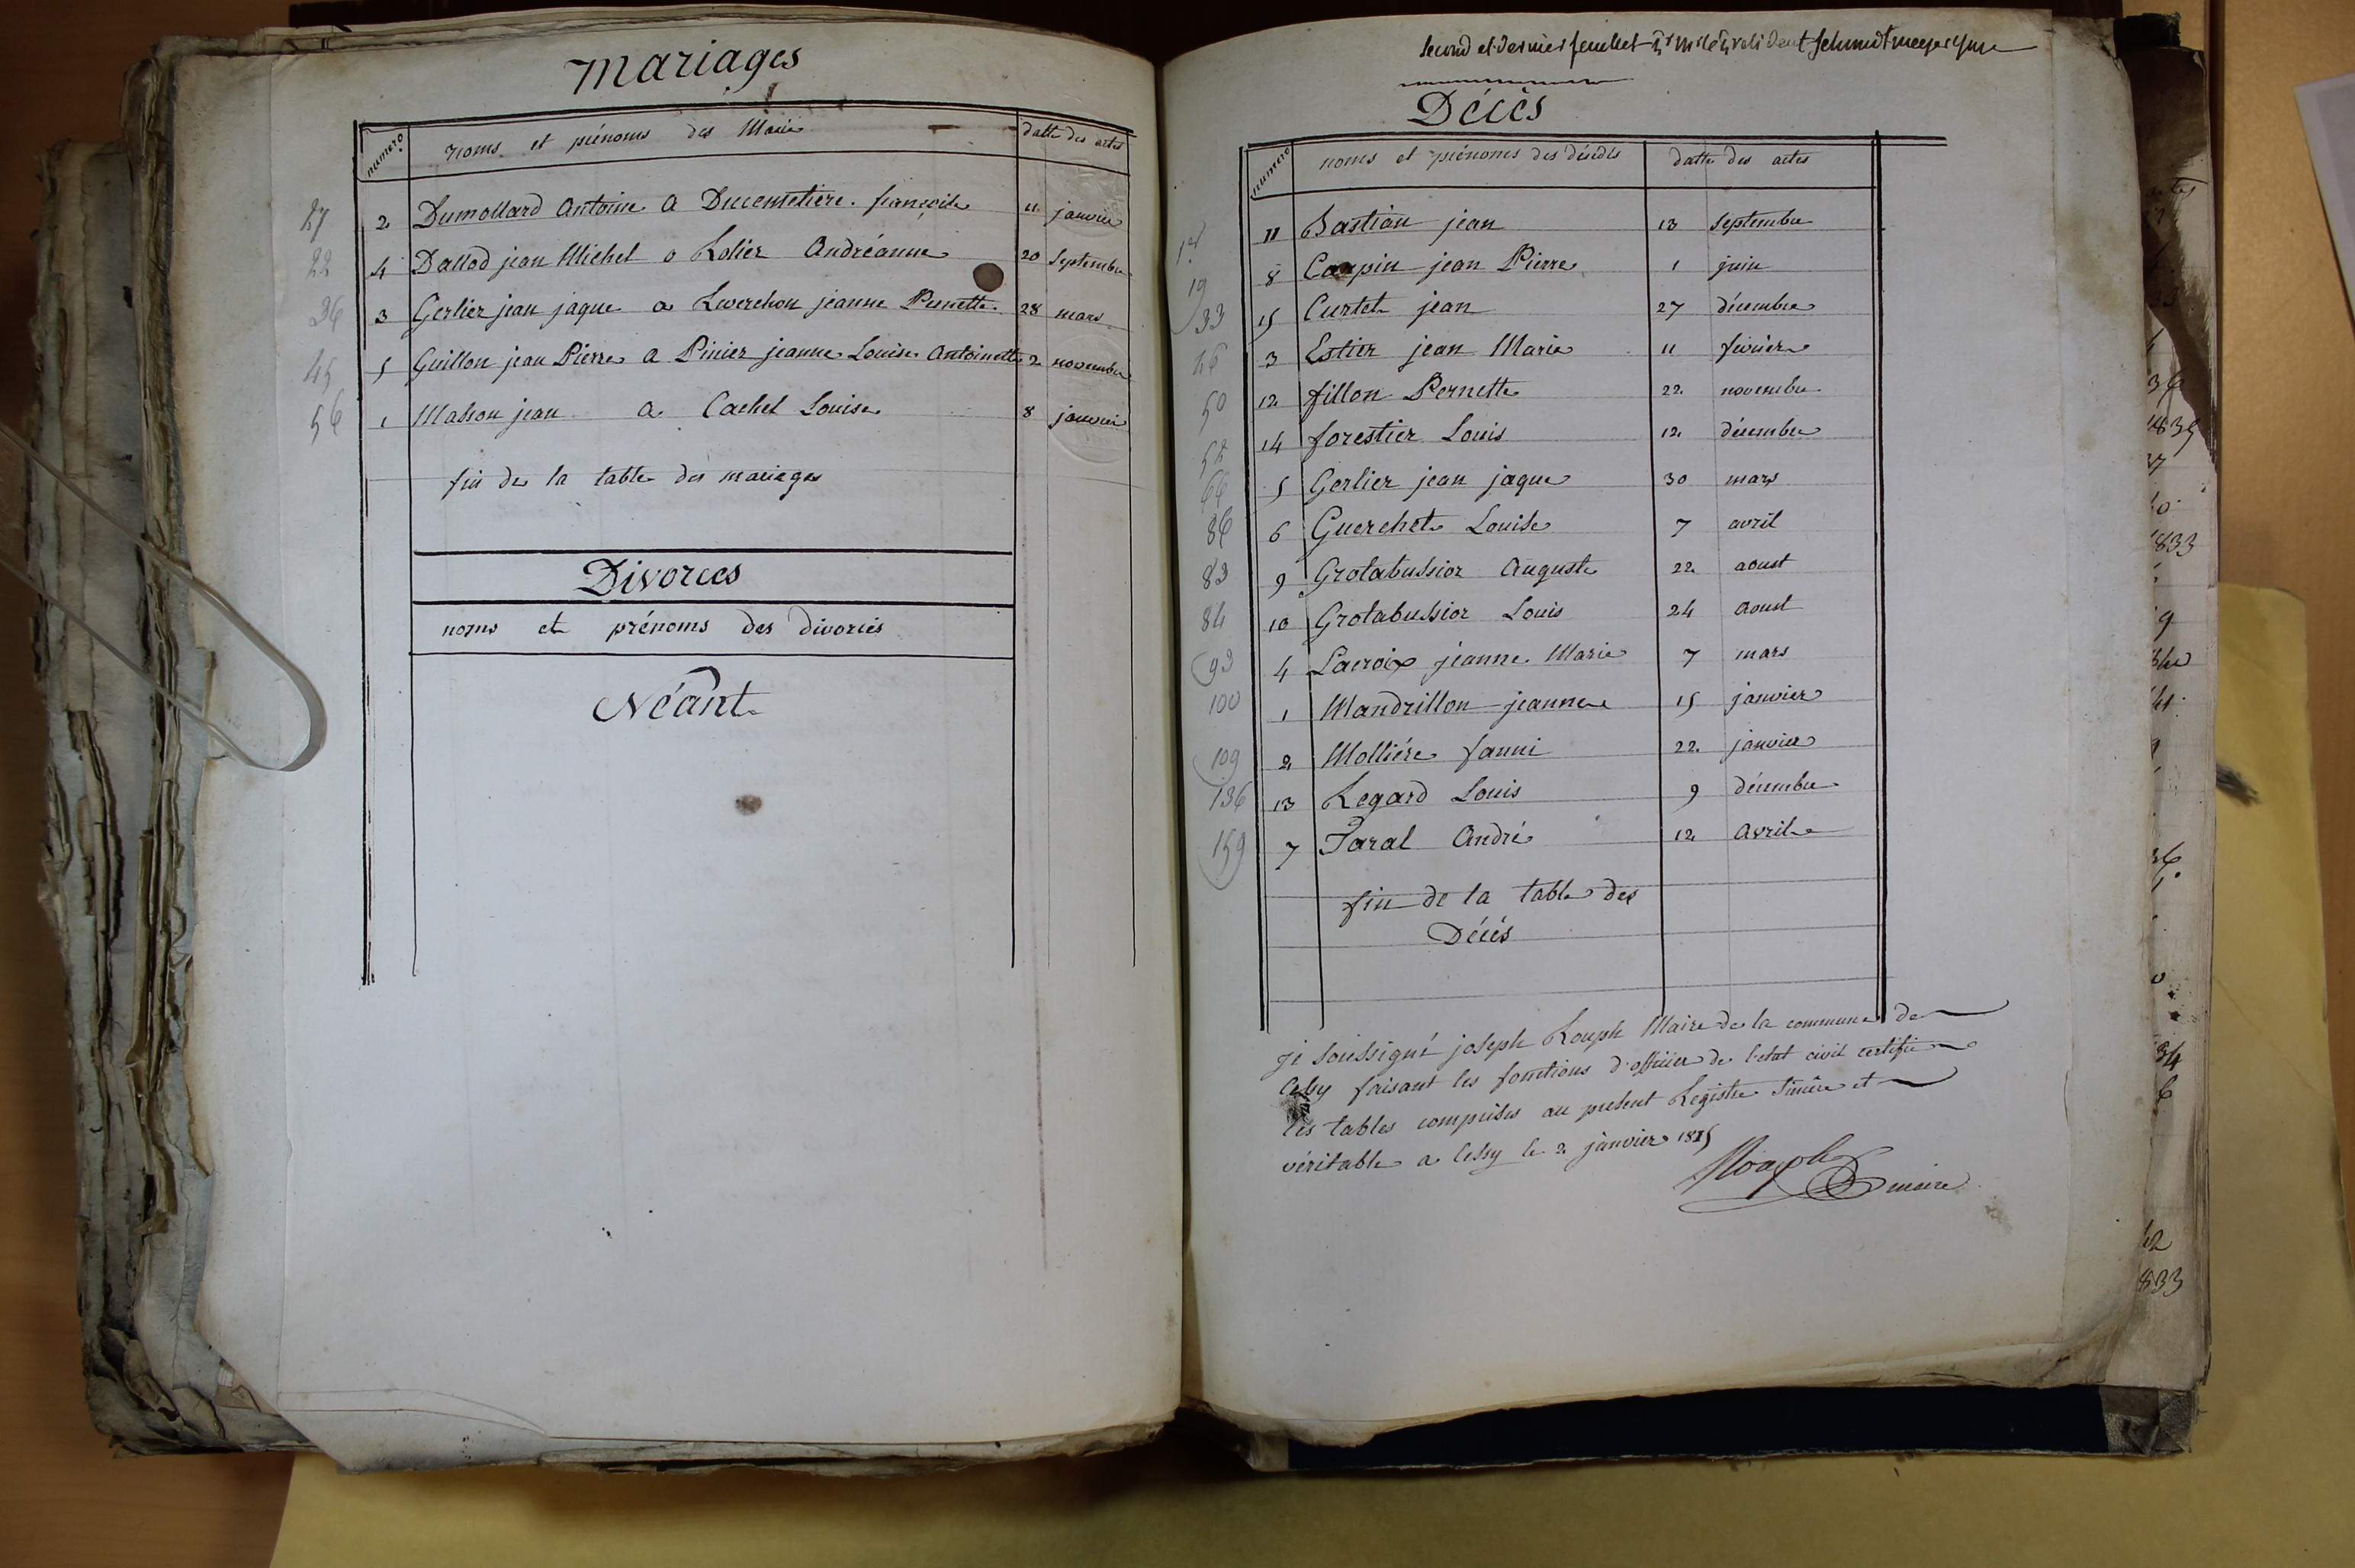 Mariages
numero noms et prénoms des Mariés datte des actes
27 2 Dumollard Antoine a Ducemetiere françoise 11 janvier
22 4 Dallod jean Michel a Rolier Andréanne 20 Septembre
36 3 Gerlier jean jaque a Lverchon jeanne Pernette 28 mars
45 5 Guillon jean Pierre a Pinier jeanne Louise Antoinette 2 novembre
56 1 Masson jean a Cachet Louise 8 janvier
fin de la table des mariages
Divorces
noms et prénoms des divorcés
Néant
Second et dernier feuillet
Décès
numero noms et prénoms des décédés datte des actes
11 Bastian jean 13 Septembre
19 8 Caupin jean Pierre 1 juin
33 15 Curtet jean 27 décembre
46 3 Estier jean Marie 11 février
50 12 fillon Pernette 22 novembre
52 14 forestier Louis 12 décembre
66 5 Gerlier jean jaque 30 mars
86 6 Guerchet Louise 7 avril
83 9 Grotabussior Auguste 22 aoust
84 10 Grotabussior Louis 24 Aoust
93 4 Lacroix jeanne Marie 7 mars
100 1 Mandrillon jeanne 15 janvier
109 2 Mollière fanni 22 janvier
136 13 Regard Louis 9 décembre
159 7 Taral André 12 Avril
fin de la table des
Décés
je soussigné joseph Rouph Maire de la commune de
Cessy faisant les fonctions d'officier de l'etat civil certifie
les tables comprises au present Registre Sincère et
véritable a Cessy le 2 janvier 1815
Rouph maire
36
1835
37
1833
9
41
36
34
6
42
833